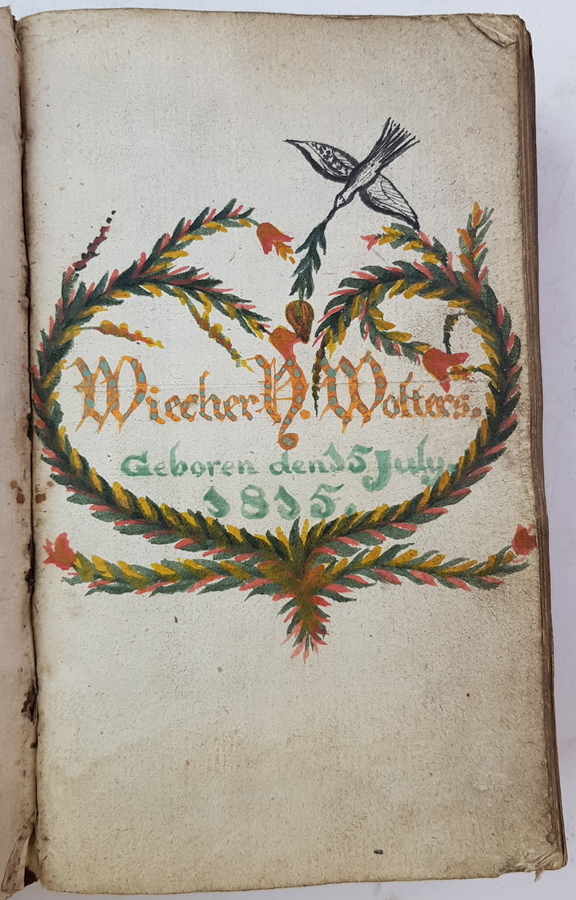 Wiecher H. Wolters.
Geboren den 15 July.
1815.